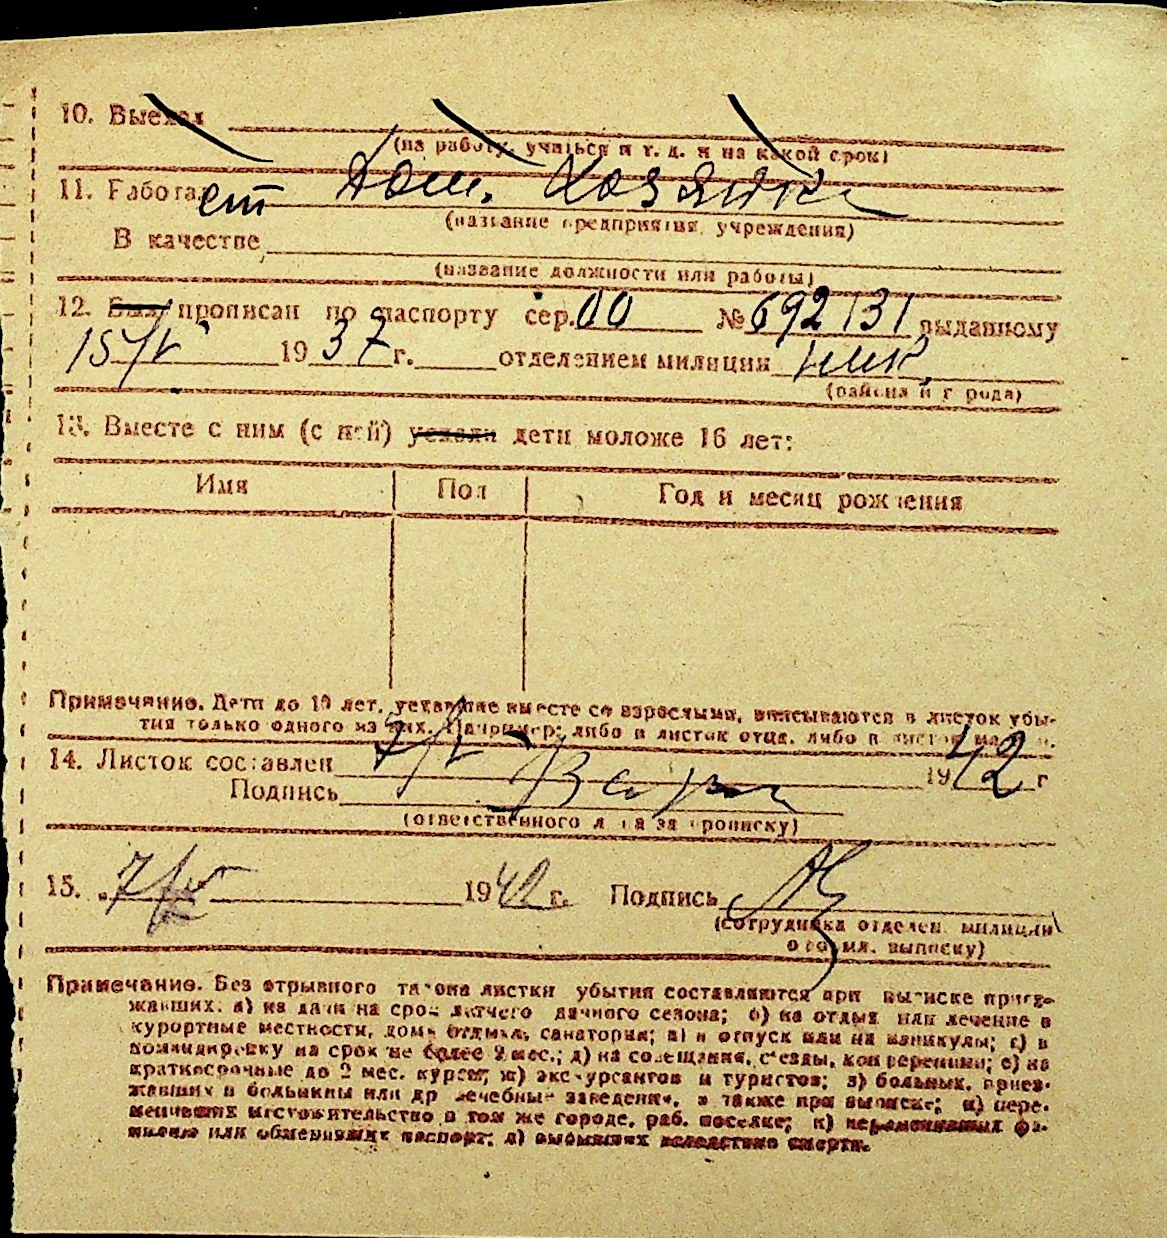 10. Выехал
(на работу, учиться и т. д. и на какой срок)
11. Работает Дом. Хозяйка
(название предприятия, учреждения)
В качестве
(название должности или работы)
12. Был прописан по паспорту сер. 00 № 692131 выданному
15/V 1937 г. отделением милиции
(района и города)
13. Вместе с ним (с ней) уехали дети моложе 16 лет:
Имя Пол Год и месяц рождения
Примечание. Дети до 16 лет, уехавшие вместе со взрослыми, вписываются в листок убы-
тия только одного из них. Например: либо в листок отца, либо в листок
14. Листок составлен 1942 г
Подпись
(ответственного лица за прописку)
15. „7/V 1942 г. Подпись
(сотрудника отделен. милиции
оформл. выписку)
Примечание. Без отрывного талона листки убытия составляются при выписке приез-
жавших: а) на дачи на срок летнего дачного сезона; б) на отдых или лечение в
курортные местности, дома отдыха, санатории; в) в отпуск или на каникулы; г) в
командировку на срок не более 2 мес.; д) на совещания, съезды, конференции; е) на
краткосрочные до 2 мес. курсы; ж) экскурсантов и туристов; з) больных, приез-
жавших в больницы или др лечебные заведения, а также при выписке; и) пере-
менивших местожительство в том же городе, раб. поселке; к) переменивших фа-
милию или обменивших паспорт; л) выбывших вследствие смерти.